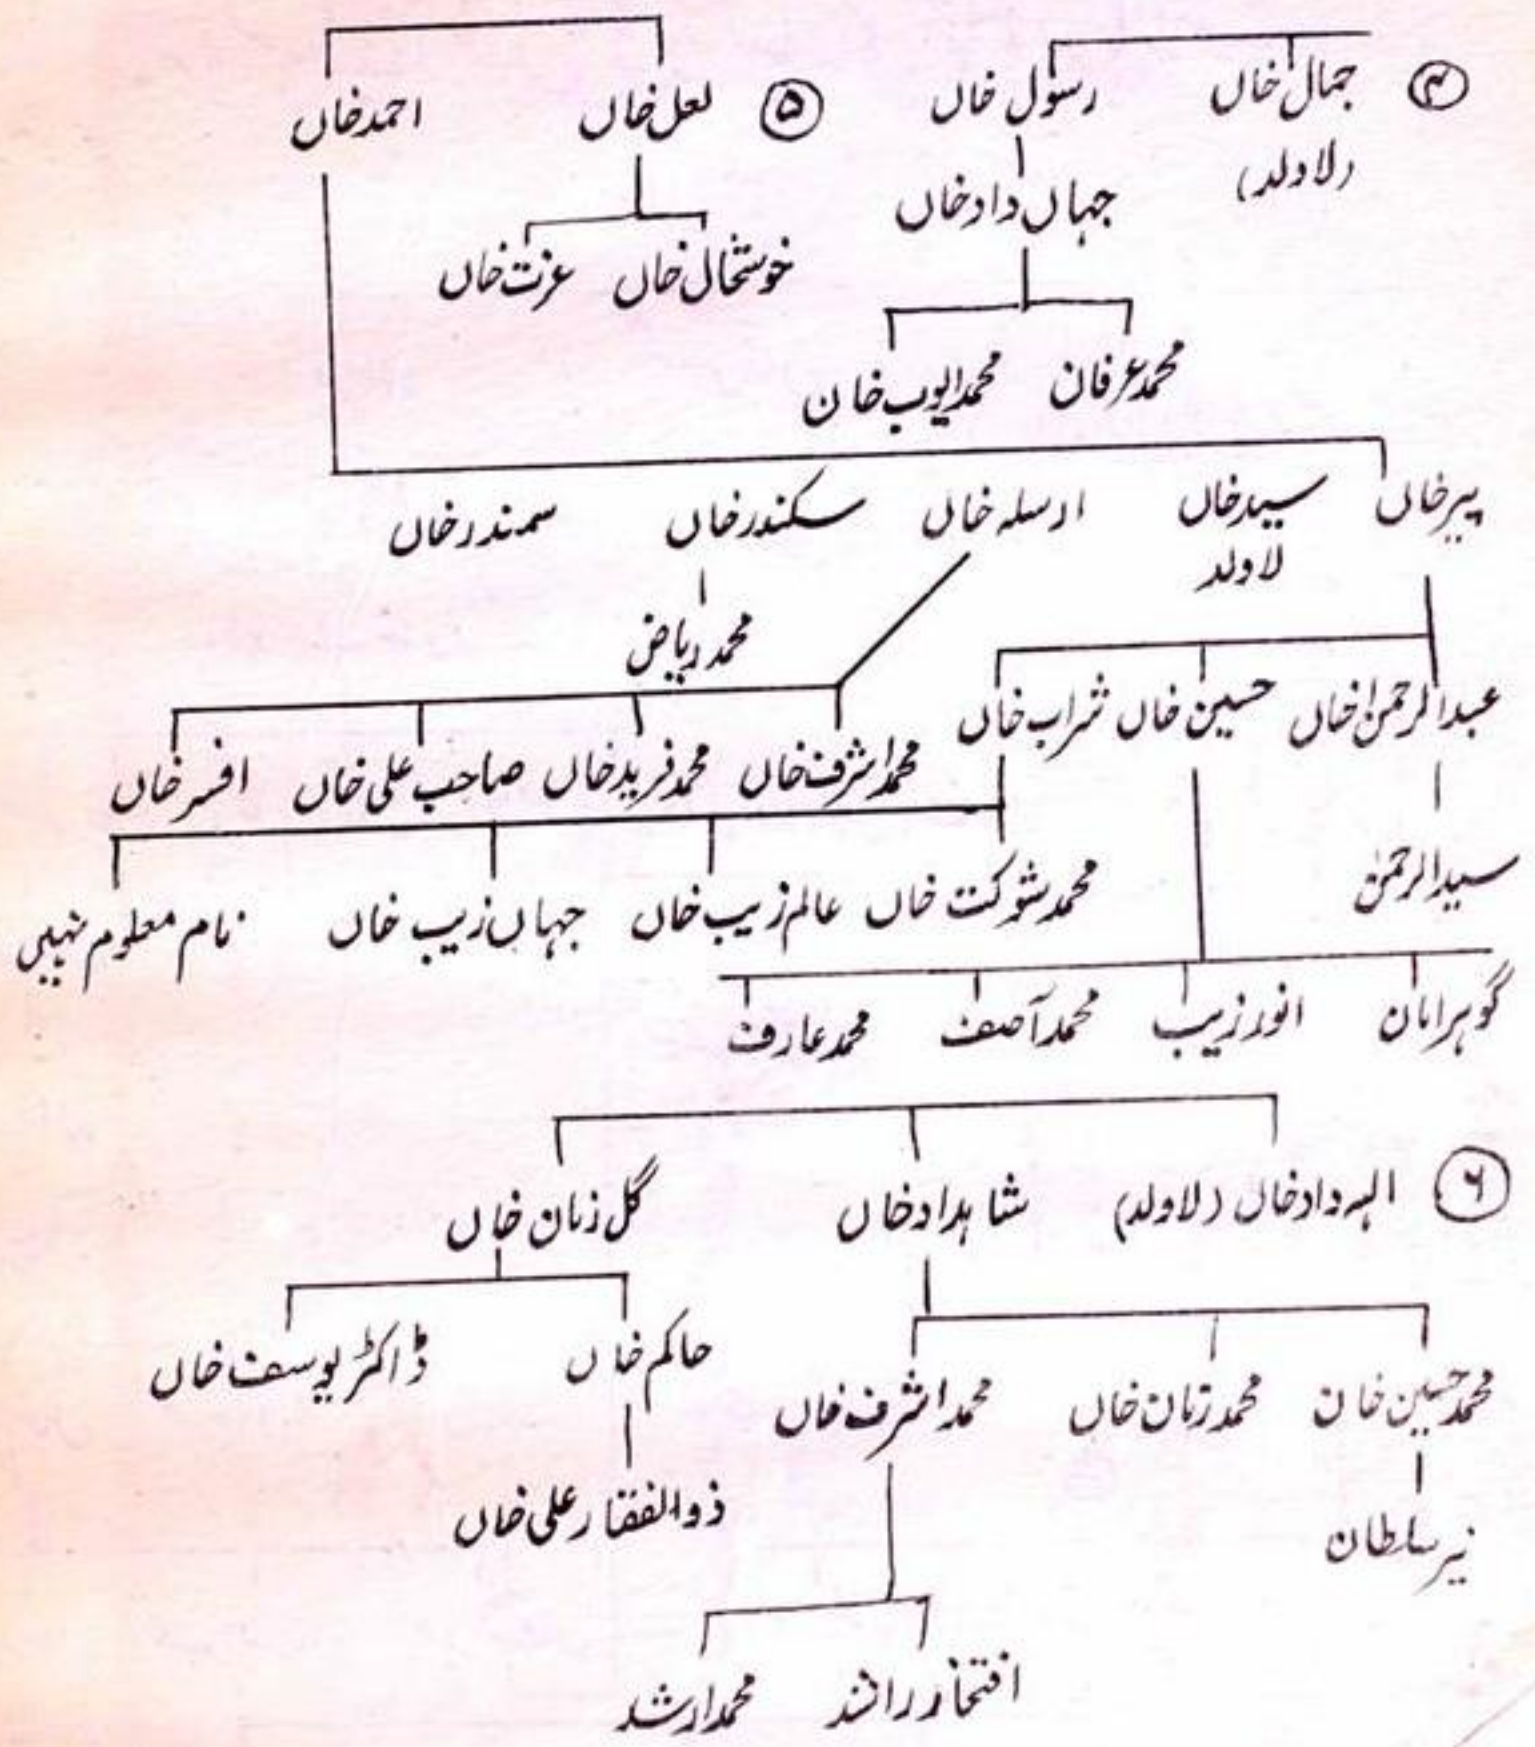 ۴ جمال خاں رسول خاں
(لاولد)
جہاں داد خاں
محمد عرفان محمد ایوب خان
۵ لعل خاں احمد خاں
خوشحال خاں عزت خاں
پیر خاں سید خاں ارسلہ خاں سکندر خاں سمندر خاں
لاولد
محمد ریاض
عبدالرحمٰن خاں حسین خاں شراب خاں
محمد اشرف خاں محمد فرید خاں صاحب علی خاں افسر خاں
سید الرحمٰن
محمد شوکت خاں عالم زیب خاں جہاں زیب خاں نام معلوم نہیں
گوہر امان انور زیب محمد آصف محمد عارف
۶ الہ داد خاں (لاولد) شاہداد خاں گل زمان خاں
حاکم خاں ڈاکٹر یوسف خاں
محمد حسین خان محمد زمان خاں محمد اشرف خاں
ذوالفقار علی خاں
نیر سلطان
افتخار راشد محمد ارشد